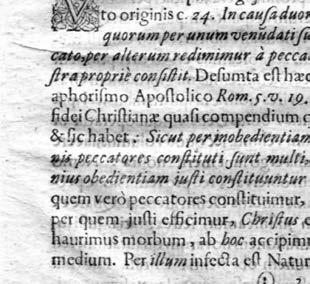 Vto originis c. 24. In causa duor
quorum per unum venudati su
cato, per alterum redimimur à pecca
stra propriè consistit. Desumta est hæc
aphorismo Apostolico Rom. 5. v. 19.
fidei Christianæ quasi compendium
& sic habet: Sicut per inobedientiam
nis peccatores constituti sunt multi,
nius obedientiam justi constituuntur
quem verò peccatores constituimur,
per quem justi efficimur, Christus
haurimus morbum, ab hoc accipim
medium. Per illum infecta est Natur